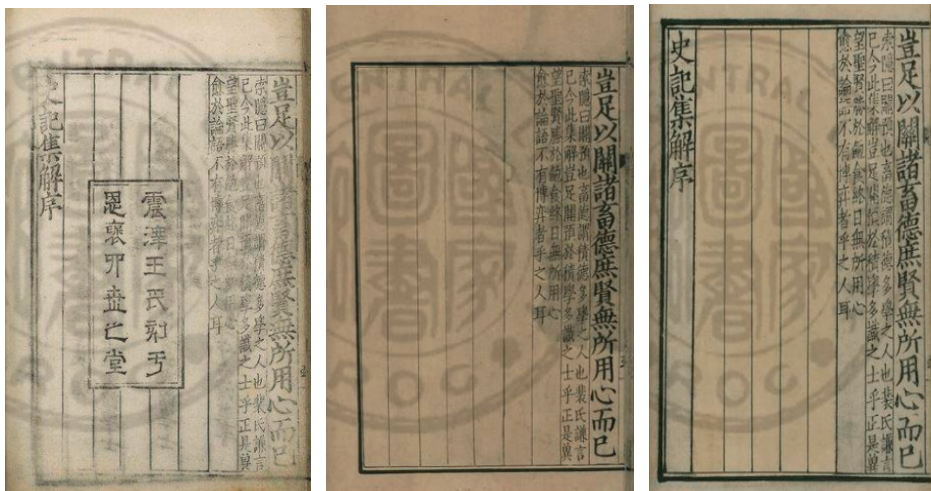 豈足以關諸畜德庶賢無所用心而已
索隱曰關預也畜德謂積德多學之人也裴氏謙言
已今此集解豈足關預於積學多識之士乎正是冀
望聖賢勝於飽食終日無所用心
愈於論語不有博弈者乎之人耳
震澤王氏刻于
恩褒四世之堂
史記集解序
豈足以關諸畜德庶賢無所用心而已
索隱曰關預也畜德謂積德多學之人也裴氏謙言
已今此集解豈足關預於積學多識之士乎正是冀
望聖賢勝於飽食終日無所用心
愈於論語不有博弈者乎之人耳
豈足以關諸畜德庶賢無所用心而已
索隱曰關預也畜德謂積德多學之人也裴氏謙言
已今此集解豈足關預於積學多識之士乎正是冀
望聖賢勝於飽食終日無所用心
愈於論語不有博弈者乎之人耳
史記集解序